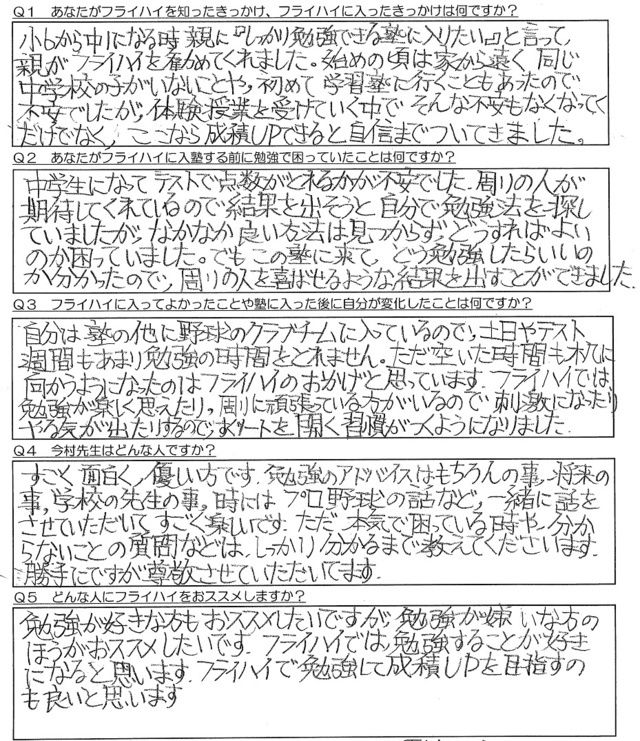 Q1 あなたがフライハイを知ったきっかけ、フライハイに入ったきっかけは何ですか？
小6から中1になる時 親に『しっかり勉強できる塾に入りたい』と言って、
親がフライハイを勧めてくれました。始めの頃は家から遠く 同じ
中学校の子がいないことや、初めて学習塾に行くこともあったので
不安でしたが、体験授業を受けていく中で そんな不安もなくなってく
だけでなく、ここなら成積UPできると自信までついてきました。
Q2 あなたがフライハイに入塾する前に勉強で困っていたことは何ですか？
中学生になって テストで点数がとれるかが不安でした. 周りの人が
期待してくれているので結果を出そうと 自分で勉強法を探し
ていましたが, なかなか良い方法は見つからず, どうすればよい
のか困っていました。でもこの塾に来て, どう勉強したらいいの
か分かったので, 周りの人を喜ばせるような結果を出すことができました.
Q3 フライハイに入ってよかったことや塾に入った後に自分が変化したことは何ですか？
自分は塾の他に野球のクラブチームに入っているので, 土日やテスト
週間もあまり勉強の時間をとれません。ただ空いた時間も机に
向かうようになったのはフライハイのおかげと思っています. フライハイでは,
勉強が楽しく思えたり, 周りに頑張っている方がいるので刺激になったり
やる気が出たりするのですぐノートを開く習慣がつくようになりました.
Q4 今村先生はどんな人ですか？
すごく面白く, 優しい方です. 勉強のアドバイスはもちろんの事, 将来の
事, 学校の先生の事, 時には プロ野球の話など, 一緒に話を
させていただいて すごく楽しいです. ただ 本気で困っている時や, 分か
らないことの質問などは, しっかり分かるまで教えてくださいます.
勝手にですが尊敬させていただいてます.
Q5 どんな人にフライハイをおススメしますか？
勉強が好きな方もおススメしたいですが, 勉強が嫌いな方の
ほうがおススメしたいです. フライハイでは, 勉強することが好き
になると思います. フライハイで勉強して成積UPを目指すの
も良いと思います